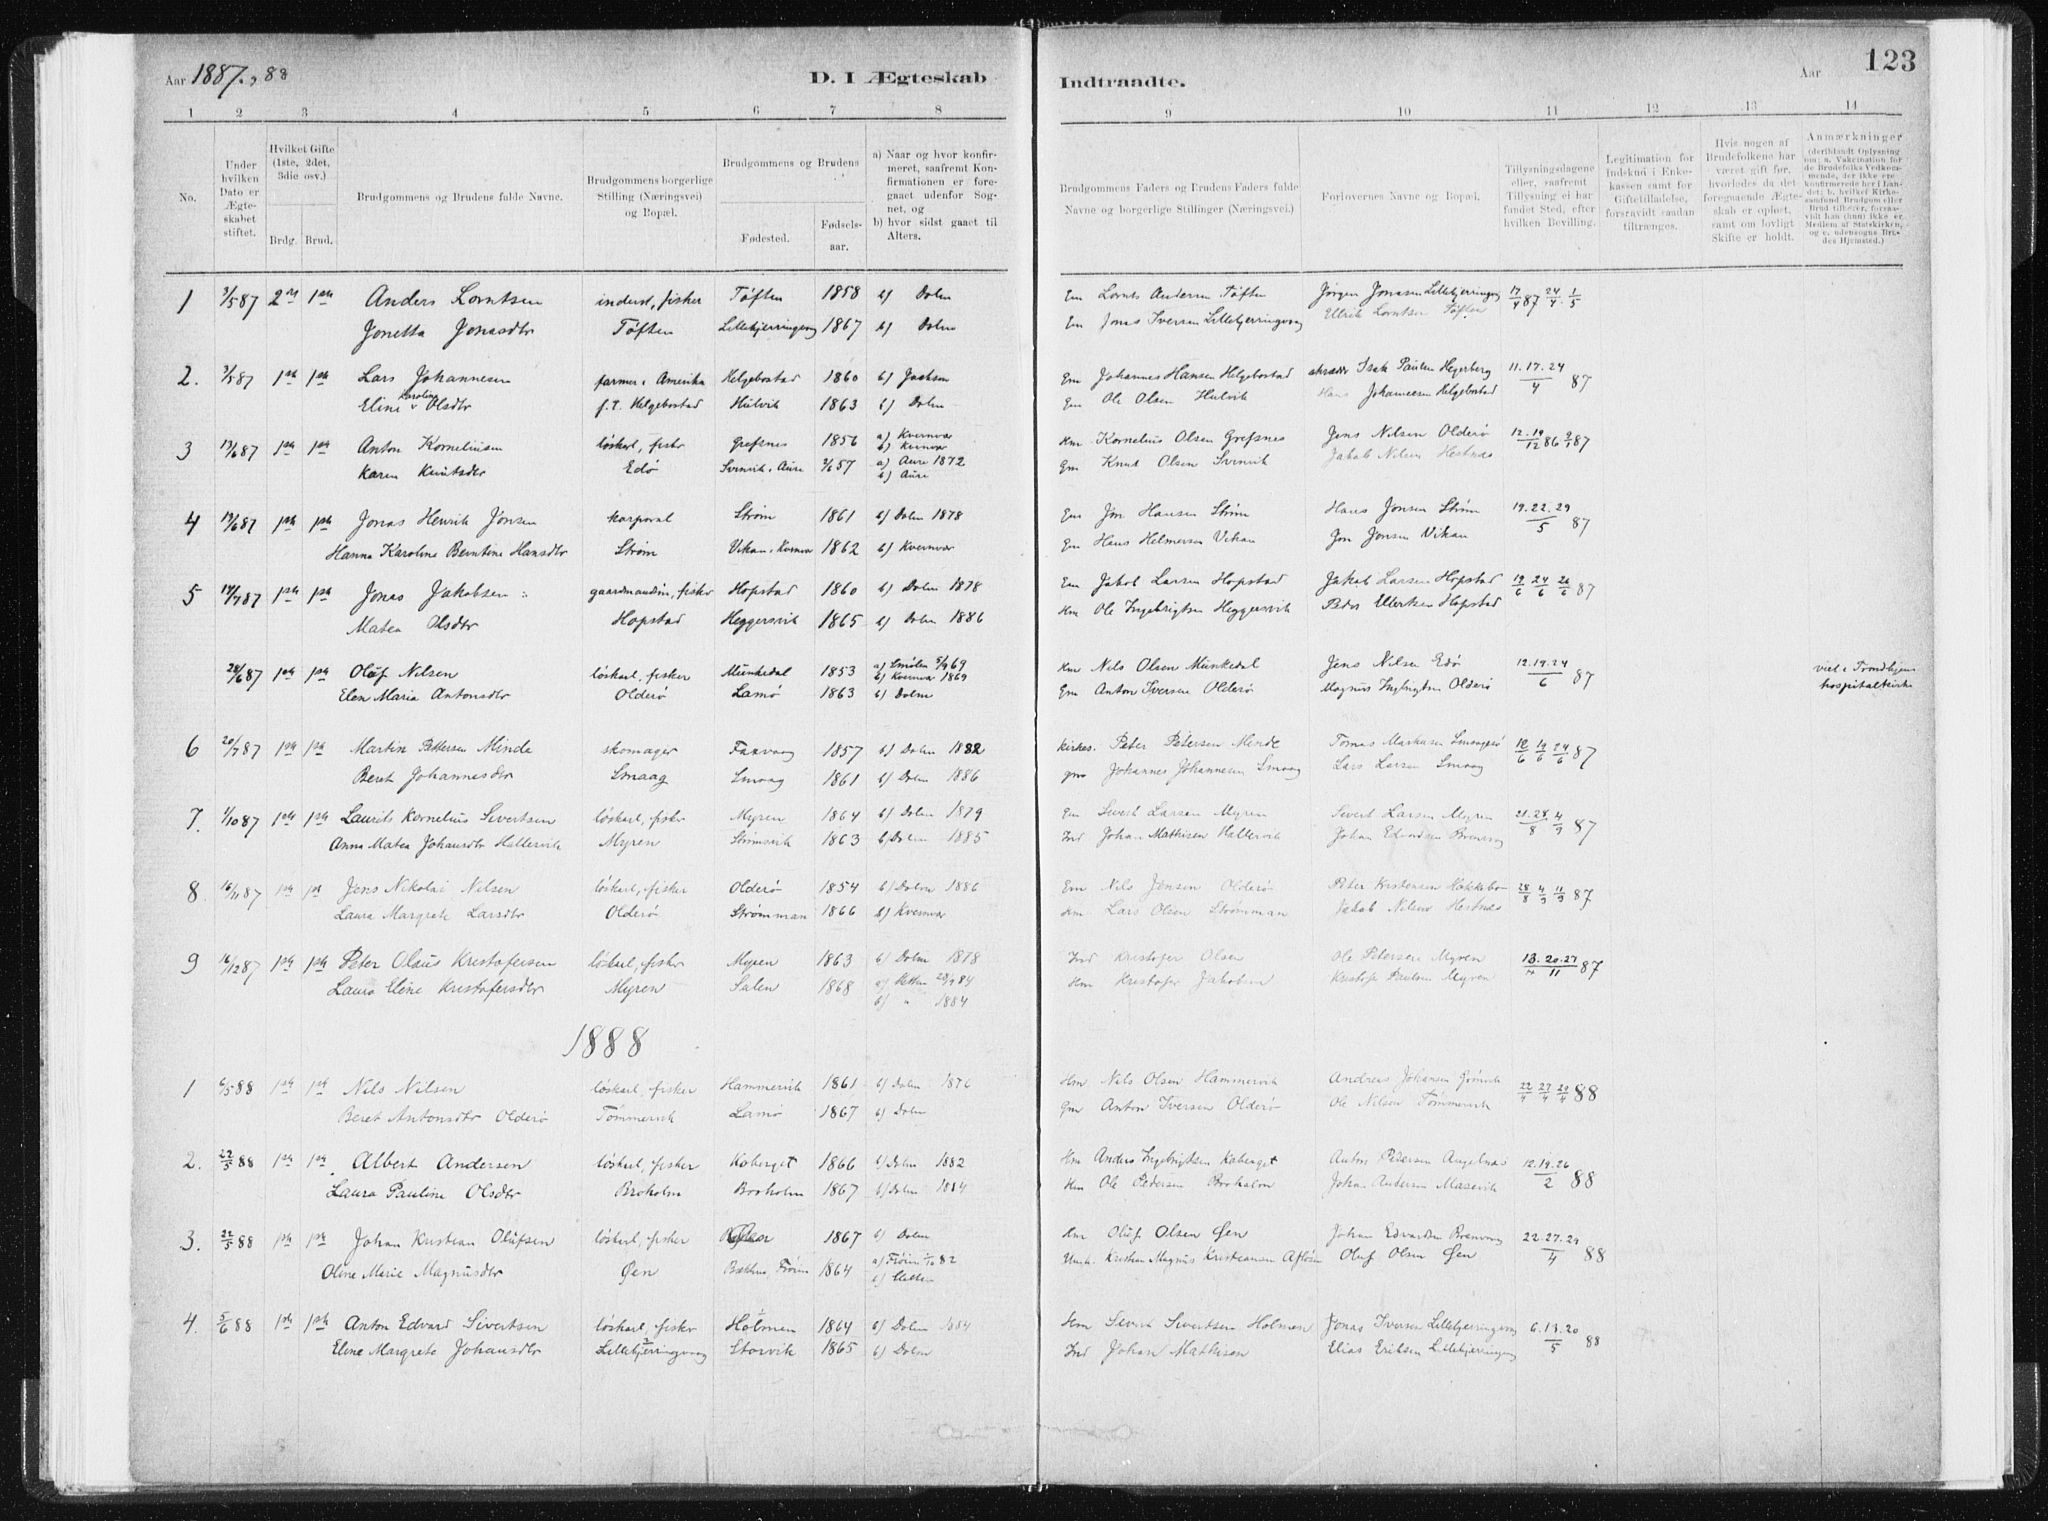 Aar 1887, 88
D. I Ægteskab
Indtraadte.
Aar
123
1 2 3 4 5 6 7 8
9 10 11 12 13 14
No.
Under hvilken Dato er Ægteskabet stiftet.
Hvilket Gifte (1ste, 2det, 3die osv.)
Brdg. Brud.
Brudgommens og Brudens fulde Navne.
Brudgommens borgerlige Stilling (Næringsvei) og Bopæl.
Brudgommens og Brudens
Fødested.
Fødselsaar.
a) Naar og hvor konfirmeret, saafremt Konfirmationen er foregaaet udenfor Sognet, og
b) hvor sidst gaaet til Alters.
Brudgommens Faders og Brudens Faders fulde Navne og borgerlige Stillinger (Næringsvei.)
Forlovernes Navne og Bopæl.
Tillysningsdagene eller, saafremt Tillysning ei har fundet Sted, efter hvilken Bevilling.
Legitimation for Indskud i Enkekassen samt for Giftetilladelse, forsaavidt saadan tiltrænges.
Hvis nogen af Brudefolkene har været gift før, hvorledes da det foregaaende Ægteskab er opløst, samt om lovligt Skifte er holdt.
Anmærkninger
1 3/5 87 2det 1ste Anders Lorntsen inderst, fisker Tøften 1858 b) Dolm Em Lornts Andersen Tøften Jørgen Jonasen Lillekjerringvaag 17/4 87 24/4 1/5
Jonetta Jonasdtr Tøften Lillekjerringvaag 1867 b) Dolm Em Jonas Iversen Lillekjerringvaag Ulrik Lorntsen Tøften
2. 3/5 87 1ste 1ste Lars Johannesen farmer i Amerika Helgebostad 1860 b) Jackson Em Johannes Hansen Helgebostad Isak Paulsen Hegerberg 11. 17. 24/4 87
Eline Karoline Olsdtr f. T. Helgebostad Hulvik 1863 b) Dolm Em Ole Olsen Hulvik Hans Johannesen Helgebostad
3 13/6 87 1ste 1ste Anton Kornelinsen løskarl, fisker Grefsnes 1856 a) Kvernvær b) Kvernvær Km Kornelius Olsen Grefsnes Jens Nilsen Olderø 12. 19/12 86 9/1 87
Karen Knutsdtr Edø Svinvik, Aure 2/6 57 a) Aure 1872 b) Aure Gm Knut Olsen Svinvik Jakob Nilsen Hestnæs
4 19/6 87 1ste 1ste Jonas Henrik Jonsen korporal Strøm 1861 b) Dolm 1878 Em Jon Hansen Strøm Hans Jonsen Strøm 19. 22. 29/5 87
Hanna Karoline Berntine Hansdtr Strøm Vikan, Kvernvær 1862 b) Kvernvær Em Hans Helmersen Vikan Jon Jonsen Vikan
5 17/7 87 1ste 1ste Jonas Jakobsen gaardmandsøn, fisker Hopstad 1860 b) Dolm 1878 Em Jakob Larsen Hopstad Jakob Larsen Hopstad 19/6 24/6 26/6 87
Matea Olsdtr Hopstad Heggersvik 1865 b) Dolm 1886 Hm Ole Ingebrigtsen Heggersvik Peder Ellertsen Hopstad
28/6 87 1ste 1ste Oluf Nilsen løskarl, fisker Munkedal 1853 a) Smølen 5/9 69 b) Kvernvær 1869 Km Nils Olsen Munkedal Jens Nilsen Edø 12. 19. 24/6 87 viet i Trondhjems hospitalkirke
Elen Maria Antonsdtr Olderø Lamø 1863 b) Dolm Em Anton Iversen Olderø Magnus Ingbrigtsen Olderø
6 20/7 87 1ste 1ste Martin Pettersen Minde skomager Faxvaag 1857 b) Dolm 1882 kirkes. Peter Petersen Minde Tomas Markusen 12/6 19/6 24/6 87
Beret Johannesdtr Smaag Smaag 1861 b) Dolm 1886 Johannes Johannesen Smaag Lars Larsen Smaag
7. 1/10 87 1ste 1ste Laurits Kornelius Sivertsen løskarl, fisker Myren 1864 b) Dolm 1879 Em Sivert Larsen Myren Sivert Larsen Myren 21. 28/8 4/9 87
Anna Matea Johansdtr Hallervik Myren Strømsvik 1863 b) Dolm 1885 Ind Johan Mathisen Hallervik Johan Edvardsen
8. 16/11 87 1ste 1ste Jens Nikolai Nilsen løskarl, fisker Olderø 1854 b) Dolm 1886 Em Nils Jensen Olderø Peter Kristensen Hakkebo 28/8 4/9 11/9 87
Laura Margrete Larsdtr Olderø Strømman 1866 b) Kvernvær Hm Lars Olsen Strømman Jakob Nilsen Hestnæs
9 16/12 87 1ste 1ste Peter Olaus Kristofersen løskarl, fisker Myren 1863 b) Dolm 1878 Ind Kristofer Olsen Ole Petersen Myren 13. 20. 27/11 87
Laura Eline Kristofersdtr Myren Salen 1868 a) 28/9 84 b) " 1884 Hm Kristofer Jakobsen Kristofer Paulsen Myren
1888
1 6/5 88 1ste 1ste Nils Nilsen løskarl, fisker Hammervik 1861 b) Dolm 1876 Hm Nils Olsen Hammervik Andreas Johansen 22/4 27/4 29/4 88
Beret Antonsdtr Olderø Tømmervik Lamø 1867 b) Dolm Gm Anton Iversen Olderø Ole Nilsen Tømmervik
2. 22/5 88 1ste 1ste Albert Andersen løskarl, fisker Kaberget 1866 b) Dolm 1882 Hm Anders Ingebrigtsen Kaberget Anton Pedersen 12. 19. 26/2 88
Laura Pauline Olsdtr Broholm Broholm 1867 b) Dolm 1884 Hm Ole Pedersen Broholm Johan Andersen Masevik
3. 22/5 88 1ste 1ste Johan Kristian Olufsen løskarl, fisker Øen 1867 b) Dolm Hm Oluf Olsen Øen Johan Edvardsen 22. 27. 29/4 88
Oline Marie Magnusdtr Øen Frøien 1864 a) Frøien 1/10 82 Kristian Magnus Kristiansen Oluf Olsen Øen
4. 5/6 88 1ste 1ste Anton Edvard Sivertsen løskarl, fisker Holmen 1864 b) Dolm 1884 Hm Sivert Sivertsen Holmen Jonas Iversen Lillekjerringvaag 6. 13. 20/5 88
Eline Margrete Johansdtr Lillekjerringvaag Storvik 1865 b) Dolm Ind Johan Mathisen Elias Eriksen Lillekjerringvaag